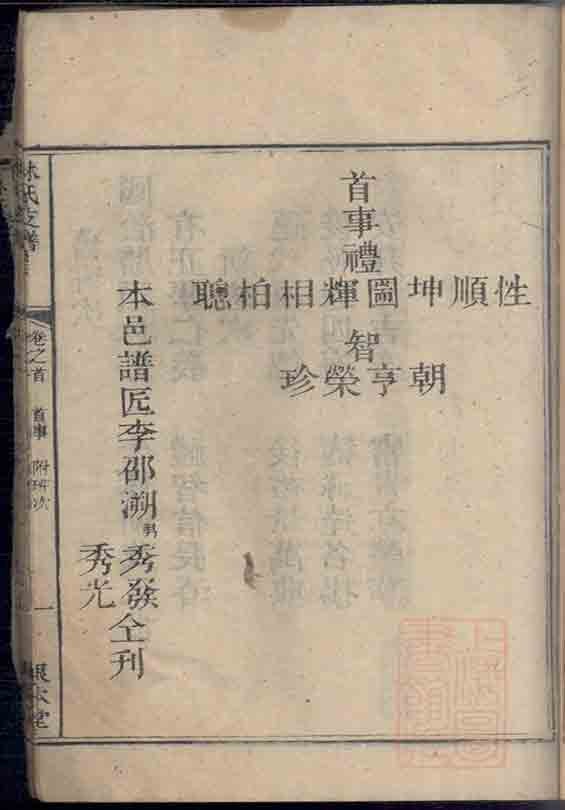 首事禮
性順坤圖輝相柏聰
智
朝亨榮珍
本邑譜匠李邵溯男秀發秀光仝刊
林氏支譜
卷之首 首事 附班次
一
報本堂